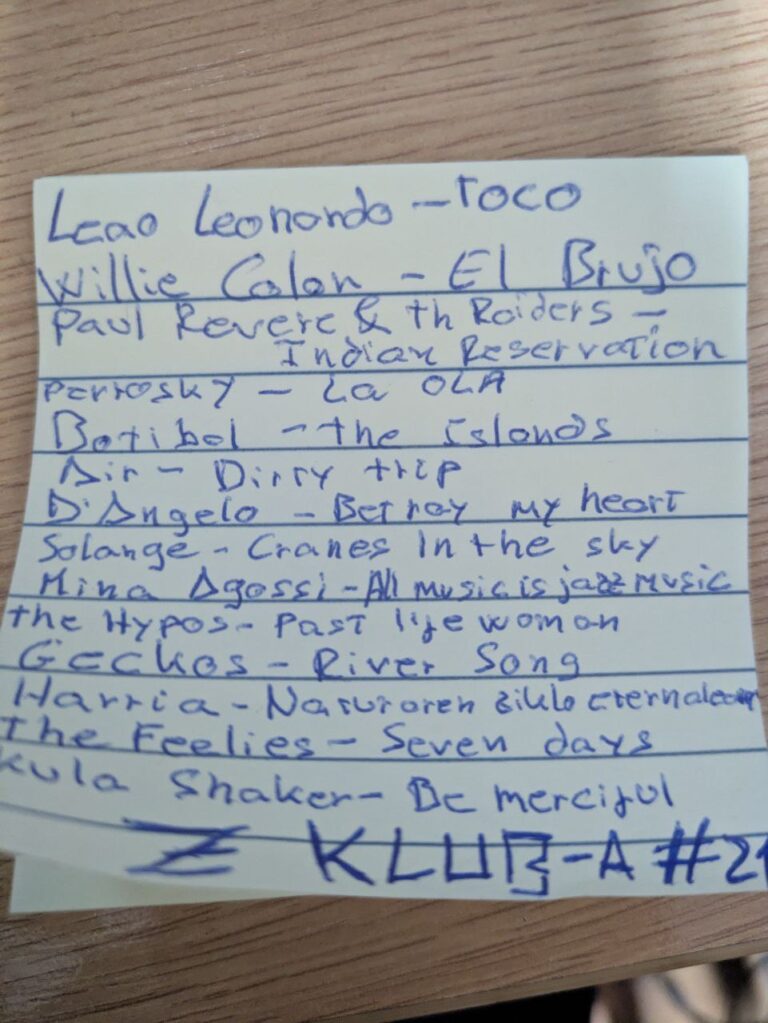 Leao Leonardo - Toco
Willie Colon - El Brujo
Paul Revere & th Raiders -
Indian Reservation
Perrosky - La OLA
Batibol - the Islands
Air - Dirty trip
D'Angelo - Betray my heart
Solange - Cranes In the sky
Mina Agossi - All music is jazz music
the Hypos - Past life woman
Geckos - River Song
Harria - Naturaren ziklo
The Feelies - Seven days
Kula Shaker - Be merciful
Z KLUB-A